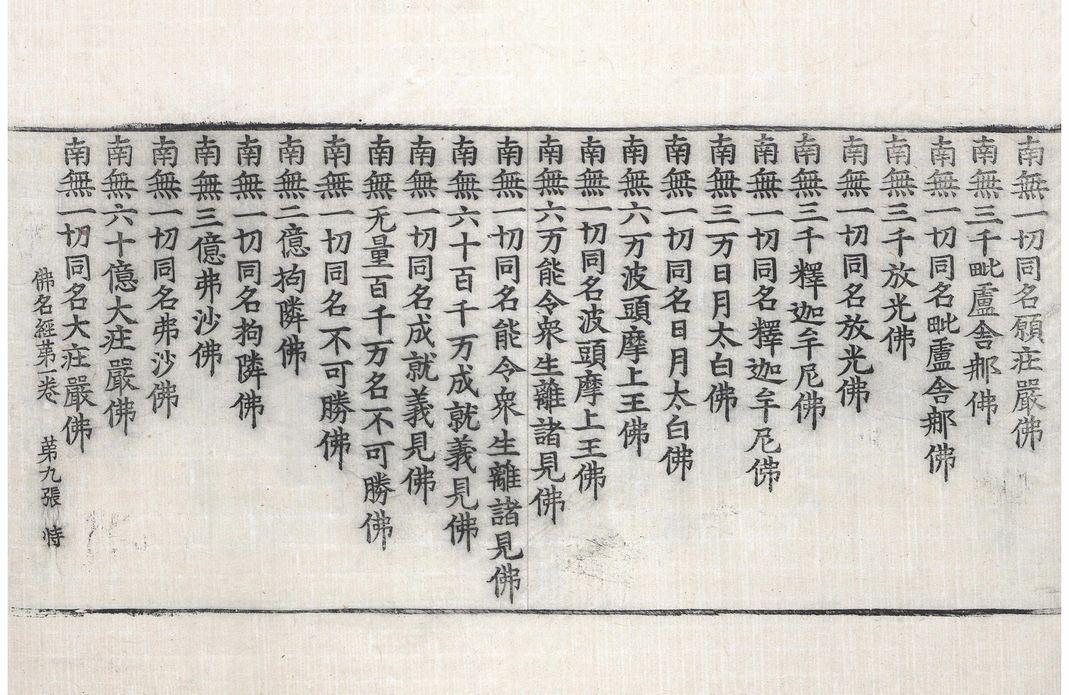 南無一切同名願莊嚴佛
南無三千毗盧舍那佛
南無一切同名毗盧舍那佛
南無三千放光佛
南無一切同名放光佛
南無三千釋迦牟尼佛
南無一切同名釋迦牟尼佛
南無三万日月太白佛
南無一切同名日月太白佛
南無六万波頭摩上王佛
南無一切同名波頭摩上王佛
南無六万能令衆生離諸見佛
南無一切同名能令衆生離諸見佛
南無六十百千万成就義見佛
南無一切同名成就義見佛
南無无量百千万名不可勝佛
南無一切同名不可勝佛
南無二億拘隣佛
南無一切同名拘隣佛
南無三億弗沙佛
南無一切同名弗沙佛
南無六十億大莊嚴佛
南無一切同名大莊嚴佛
佛名經第一卷 第九張 恃